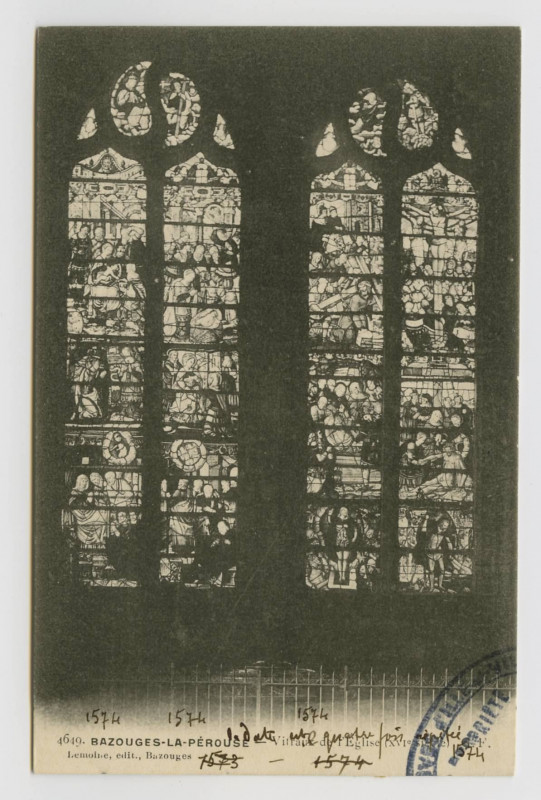 1574 1574 1574
la date est quatre fois répétée
4649. BAZOUGES-LA-PÉROUSE — Vitraux de l'Eglise (XVIe
1574
Lemoine, édit., Bazouges 1573 — 1574
PROPRIÉTÉ